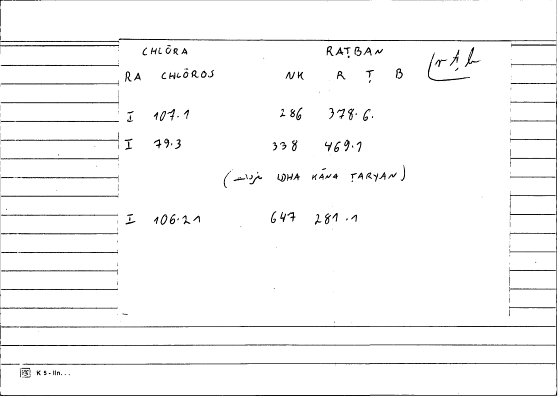 CHLŌRA RAṬBAN
RA CHLŌROS NK R Ṭ B r ṭ b
I 107.1 286 378.6.
I 79.3 338 469.1
( IDHA KĀNA ṬARYAN )
I 106.21 647 281.1
K S - IIn...